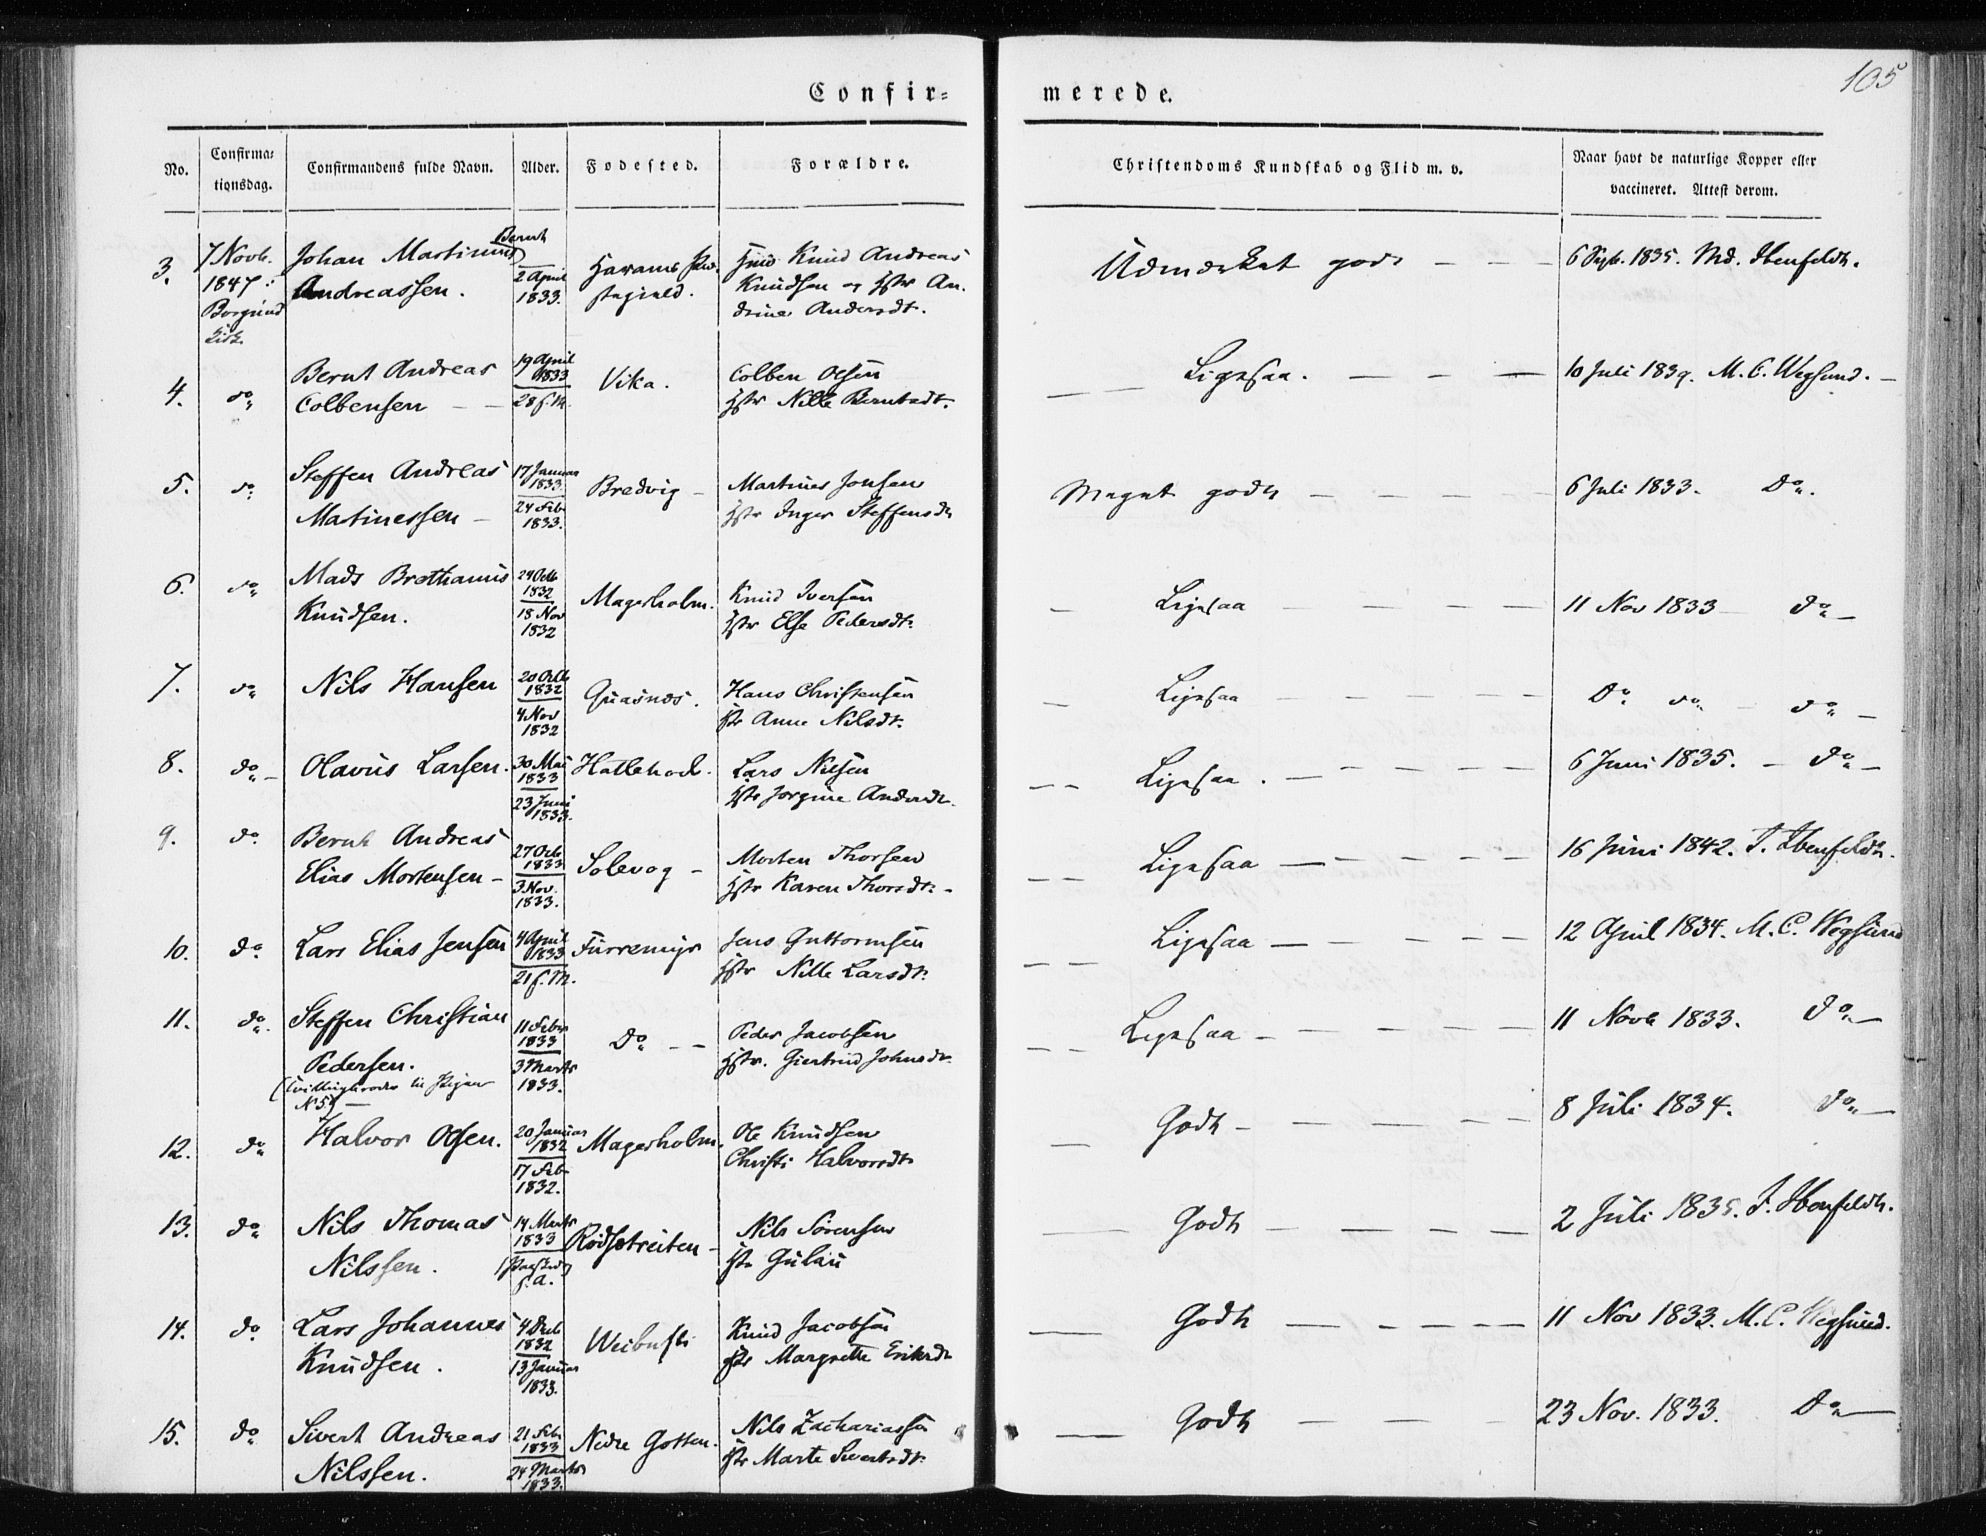 Confir=
merede.
105
No.
Confirma=
tionsdag.
Confirmandens fulde Navn.
Alder.
Fodested.
Forældre.
Christendoms Kundskab og Flid m. v.
Naar havt de naturlige Kopper eller
vaccineret. Attest derom.
3.
7 Novb.
1847 :
Borgund
Kirk.
Bernt
Johan Martinus
Andreassen.
2 April
1833.
Harams
Knud Andreas
Knudsen og Hstr An.
drine Andersdt.
Udmærket godt — — —
6 Sept. 1835. Md. Ibenfeldt.
4.
do
Bernt Andreas
Colbensen — —
19 April
1833
28 s. M.
Vika.
Colben Olsen
Hstr Nille Berntsdt.
— Ligesaa. — — —
10 Juli 1839. M. C. Wegsund. —
5.
do
Steffen Andreas
Matinessen —
17 Januar
1833.
24 Feb
1833.
Bredvig —
Martines Jonsen
Hstr Inger Steffensdt
Meget godt — — — — —
6 Juli 1833. Do.
6.
do
Mads Brothanius
Knudsen.
24 Octb
1832
18 Nov
1832
Magerholm.
Knud Iversen
Hstr Else Pedersdt.
— Ligesaa — — — —
11 Nov 1833 — do —
7.
do
Nils Hansen
20 Octb
1832
4 Nov
1832
Quasnæs.
Hans Christensen
Hstr Anne Nilsdt.
— Ligesaa — — — — —
Do do — do —
8.
do —
Olavus Larsen.
30 Mai
1833
23 Juni
1833.
Hatlehol.
Lars Nilsen
Hstr Jorgine Andersdt.
— — Ligesaa. — — — — —
6 Juni 1835. — do —
9.
do
Bernt Andreas
Elias Mortensen —
27 Octb
1833
3 Nov.
1833.
Solevog —
Morten Thorsen
Hstr Karen Thorsdt. —
— — Ligesaa — — — — —
16 Juni 1842. T. Ibenfeldt.
10.
do
Lars Elias Jensen
4 April
1833
21 s. M.
Furremyr
Jens Guttormsen
Hstr Nille Larsdt.
— — Ligesaa — — — — —
12 April 1834. M. C. Wegsund
11.
do.
Steffen Christian
Pedersen.
(Tvillingbroder til Pigen
N 5) —
11 Febr
1833
3 Marts
1833.
Do — —
Peder Jacobsen
Hstr. Giertrud Johnsdt.
— — Ligesaa — — — — —
11 Novb 1833. do —
12.
do
Halvor Olsen.
20 Januar
1832
17 Feb
1832.
Magerholm.
Ole Knudsen
Christi Halvorsdt
— Godt — — — — —
8 Juli 1834. do —
13.
do
Nils Thomas
Nilssen.
14 Marts
1833
s. A.
Rødsetreiten —
Nils Sørensen
Hstr Gulau
— Godt — — — — —
2 Juli 1835. T. Ibenfeldt.
14.
do
Lars Johannes
Knudsen.
4 Decb
1832
13 Januar
1833.
Weibust
Knud Jacobsen
Hstr Margrethe Eriksdt
— Godt — — — — —
11 Nov 1833. M. C. Wegsund.
15.
do
Sivert Andreas
Nilssen.
21 Feb
1833
24 Marts
1833.
Nedre Gotten.
Nils Zachariassen
Hstr Marte Sivertsdt.
— Godt — — — —
23 Nov. 1833. Do —